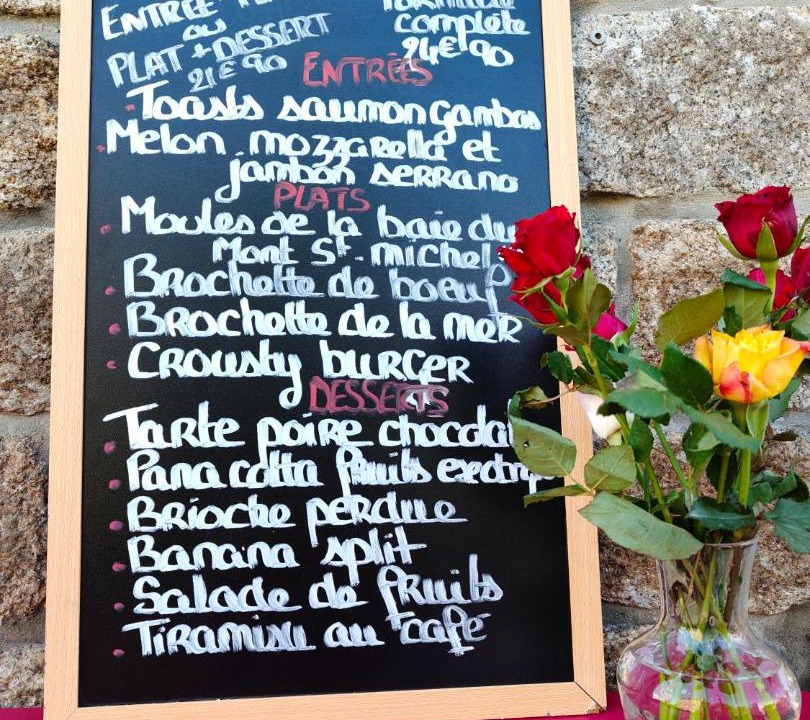 ENTRÉE
ou
PLAT + DESSERT
21€90
complète
24€90
ENTRÉES
Toasts saumon gambas
Melon mozzarella et
jambon serrano
PLATS
Moules de la baie du
Mont St. michel
Brochette de boeuf
Brochette de la mer
Crousty burger
DESSERTS
Tarte poire chocolat
Pana cotta fruits
Brioche perdue
Banana split
Salade de fruits
Tiramisu au café